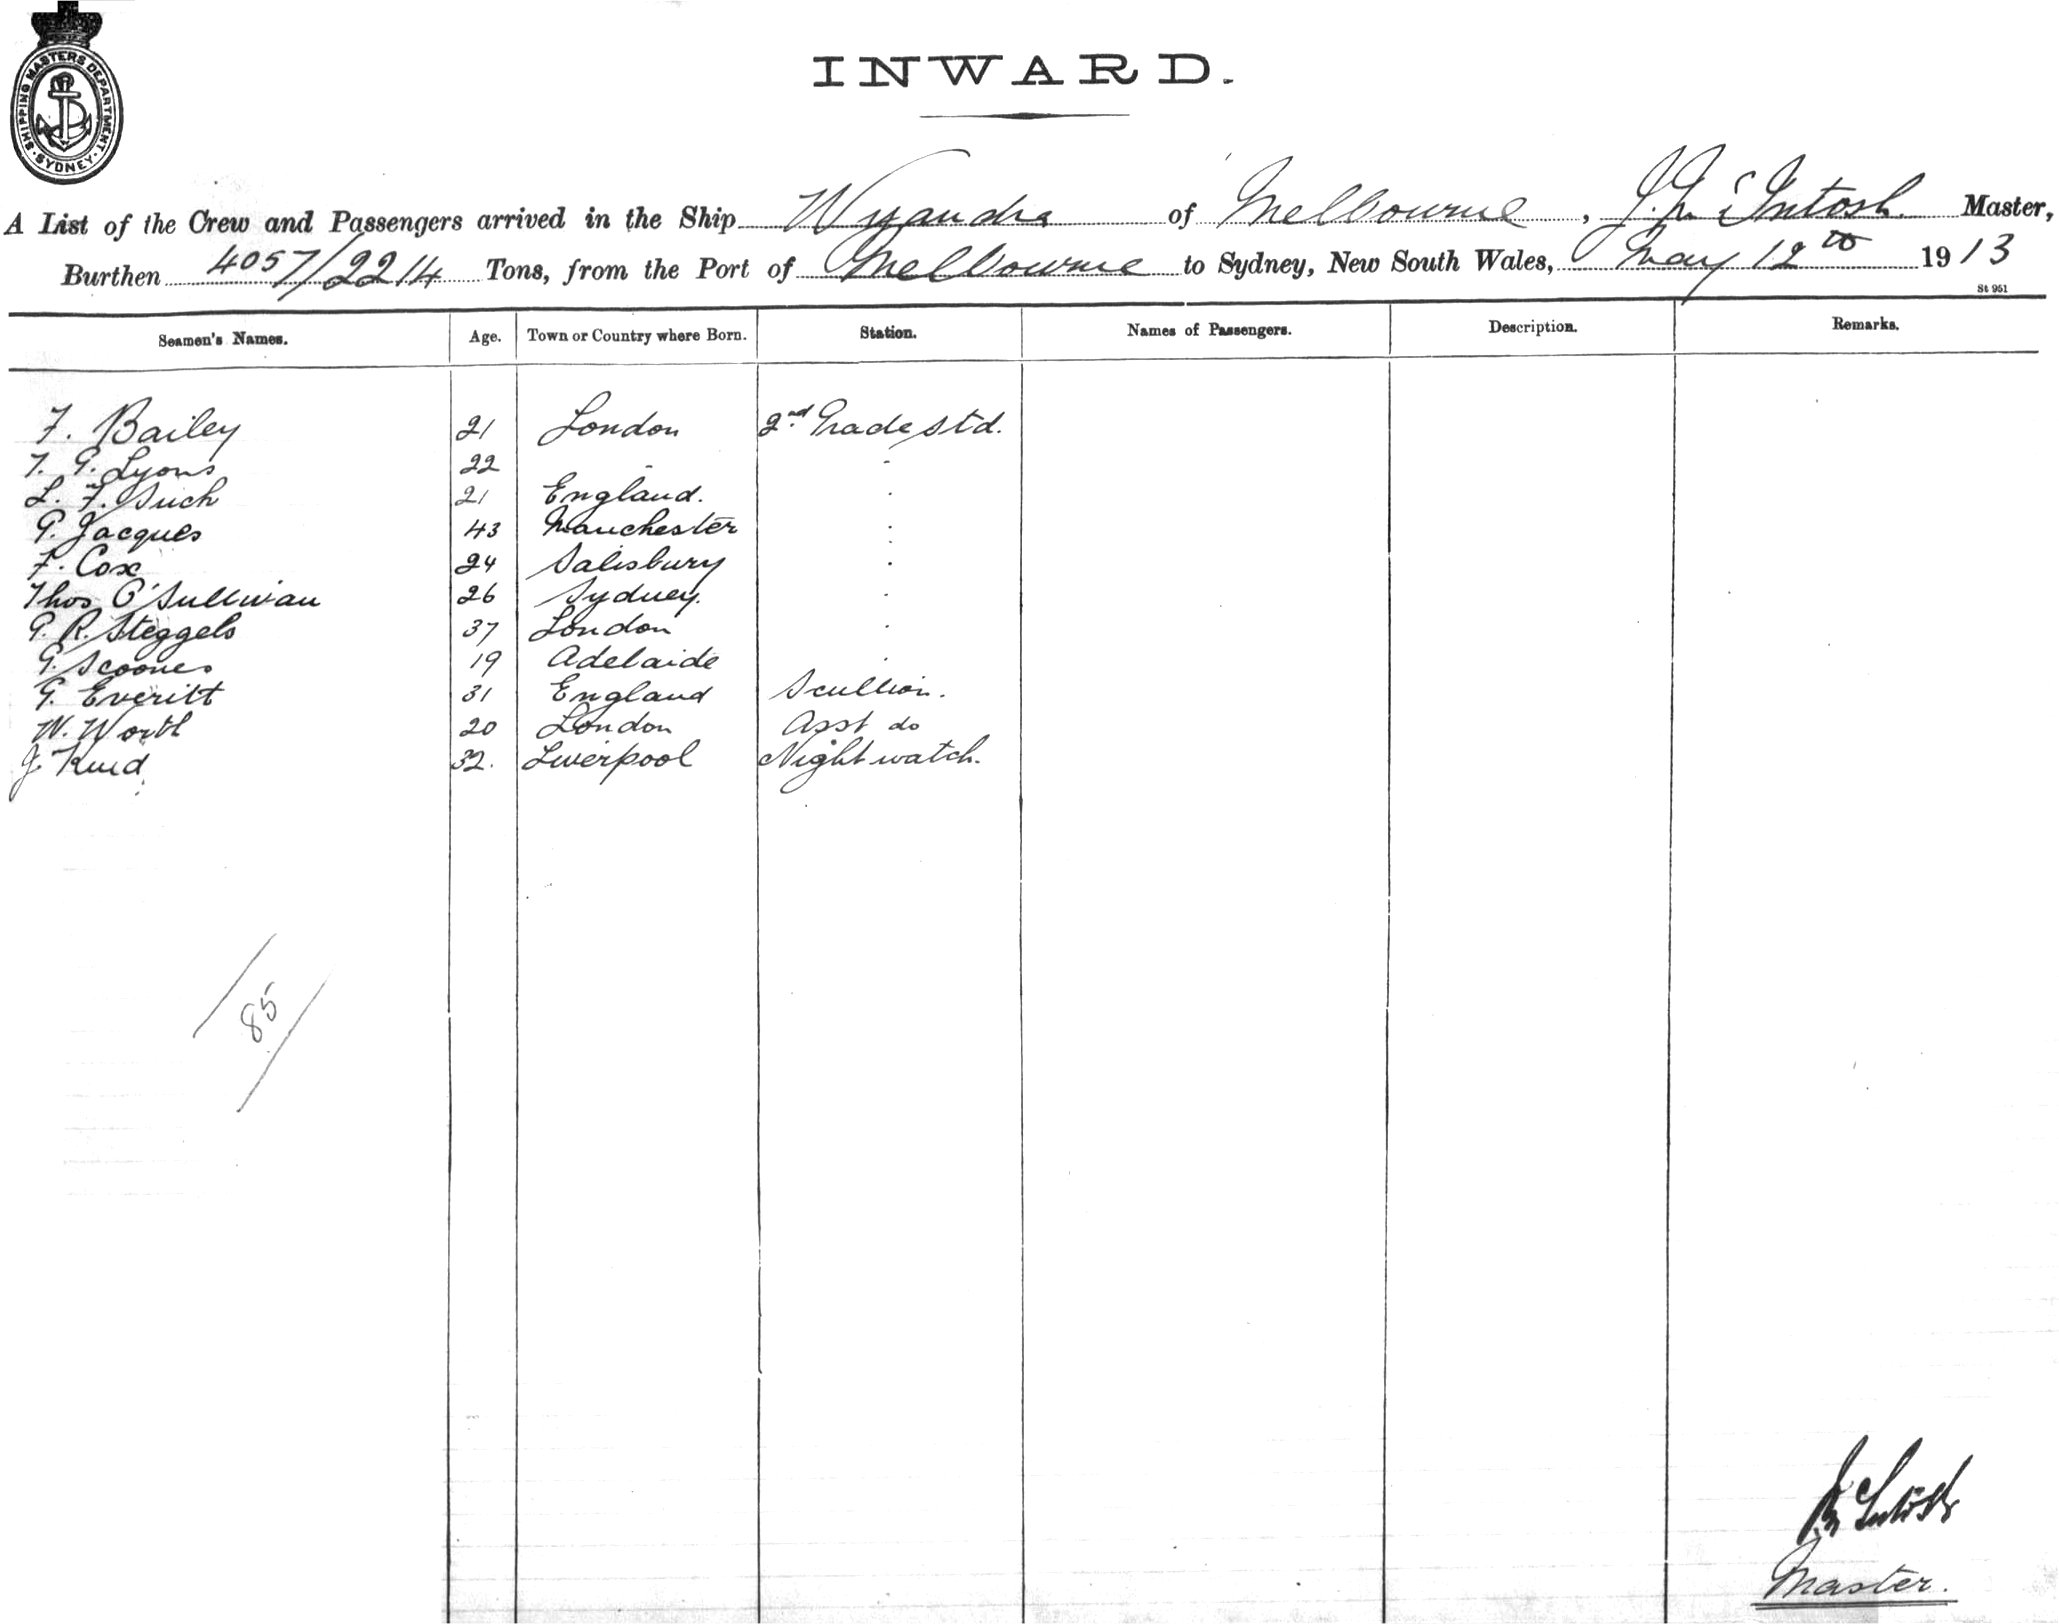 SHIPPING MASTERS DEPARTMENT · SYDNEY ·
INWARD.
A List of the Crew and Passengers arrived in the Ship Wyandra of Melbourne, J. McIntosh Master,
Burthen 4057/2214 Tons, from the Port of Melbourne to Sydney, New South Wales, May 12th 1913
St 951
Seamen's Names. Age. Town or Country where Born. Station. Names of Passengers. Description. Remarks.
F. Bailey 21 London 2nd Grade Std.
T. G. Lyons 22 "
L. F. Such 21 England.
G. Jacques 43 Manchester
F. Cox 24 Salisbury
Thos O'Sullivan 26 Sydney.
G. R. Steggels 37 London
G. Scoones 19 Adelaide
G. Everitt 31 England Scullion.
W. Worth 20 London Asst do
J. 32. Liverpool Night watch.
85
McIntosh
Master.